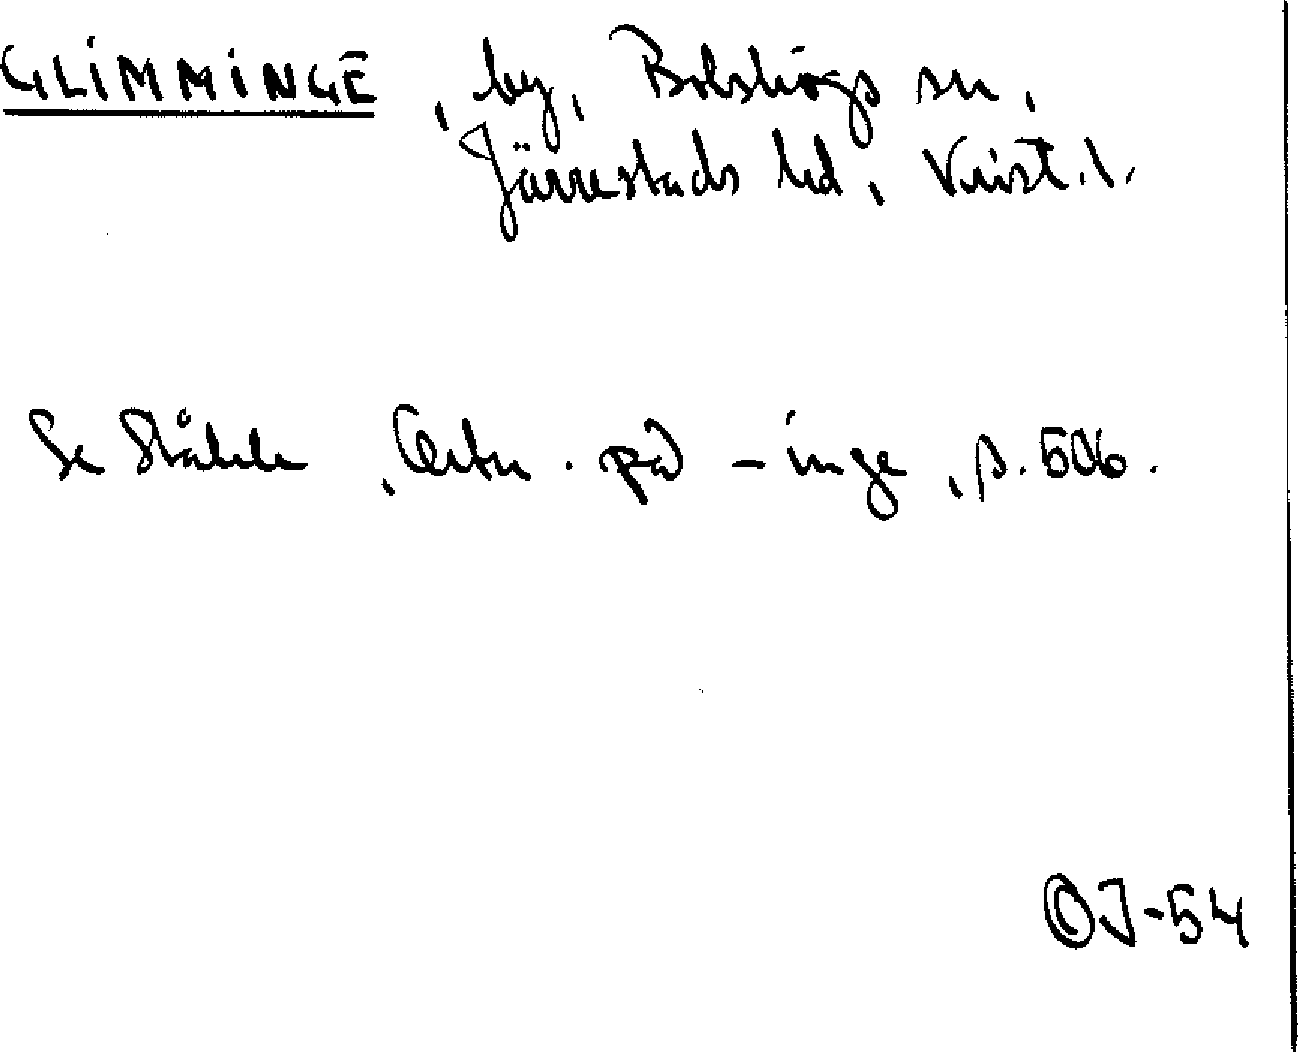 GLIMMINGE, by, Bolshögs sn,
Järrestads hd, Krist. l.
Se Ståhle, Ortn. på -inge, s. 506.
OJ-54